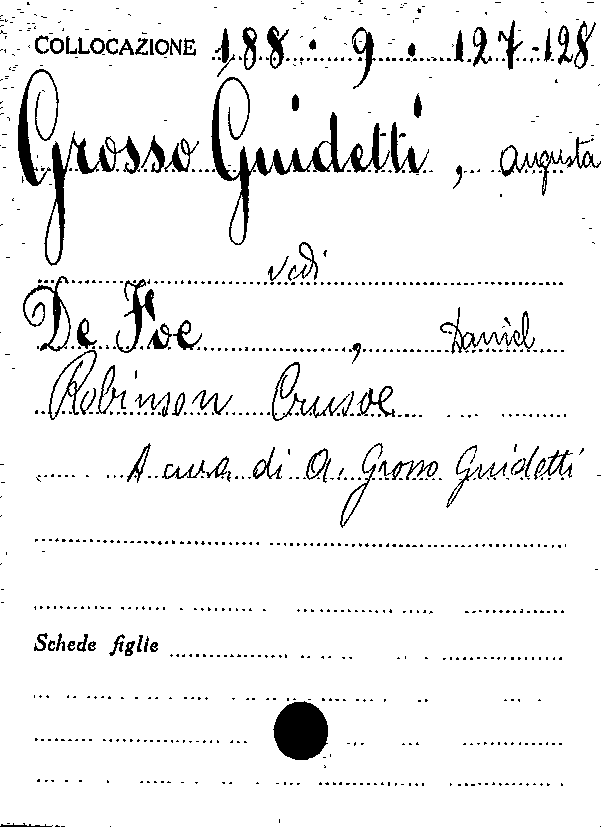 COLLOCAZIONE 188 . 9 . 127-128
Grosso Guidetti, Augusta
vedi
De Foe, Daniel
Robinson Crusoe
A cura di A. Grosso Guidetti
Schede figlie